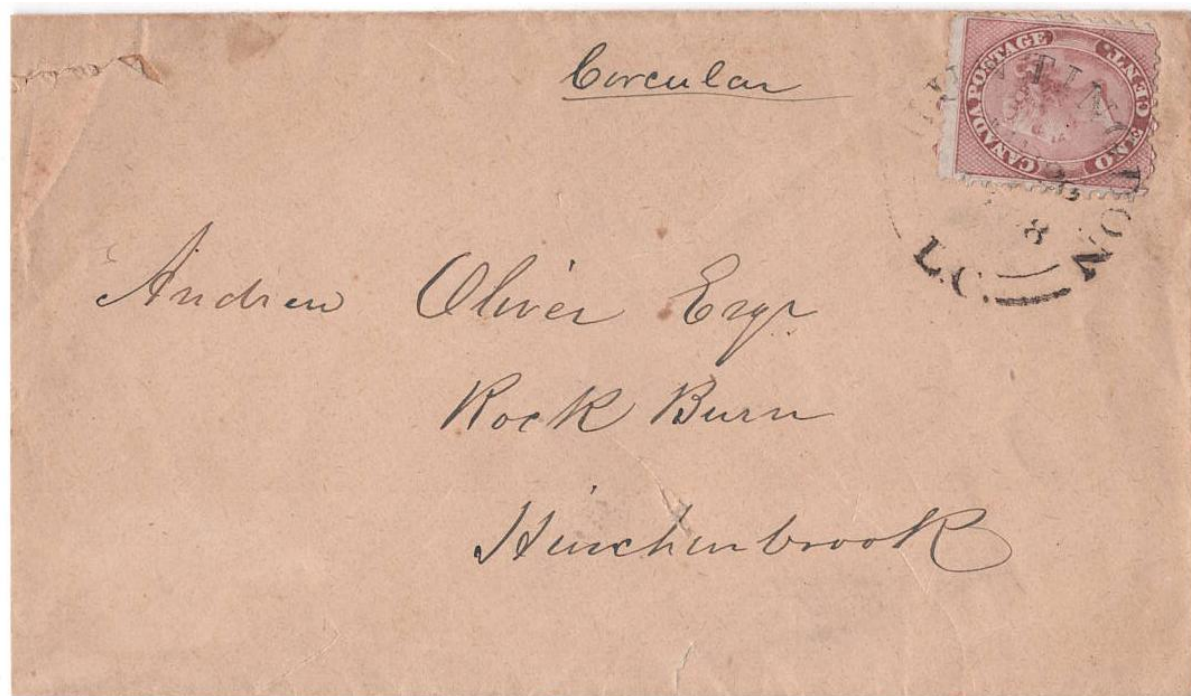 Circular
CANADA POSTAGE ONE CENT.
HUNTINGDON
L.C.
Andrew Oliver Esqr
Rock Burn
Hinchinbrook